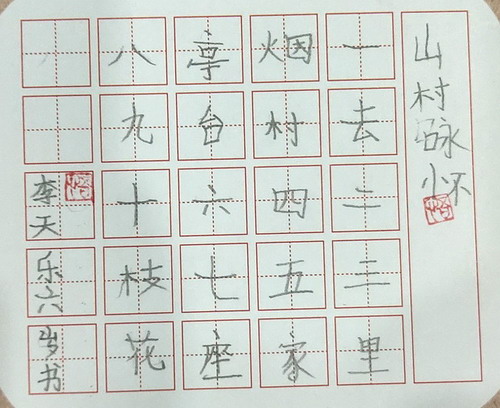 山村咏怀
一去二三里
烟村四五家
亭台六七座
八九十枝花
李天乐六岁书